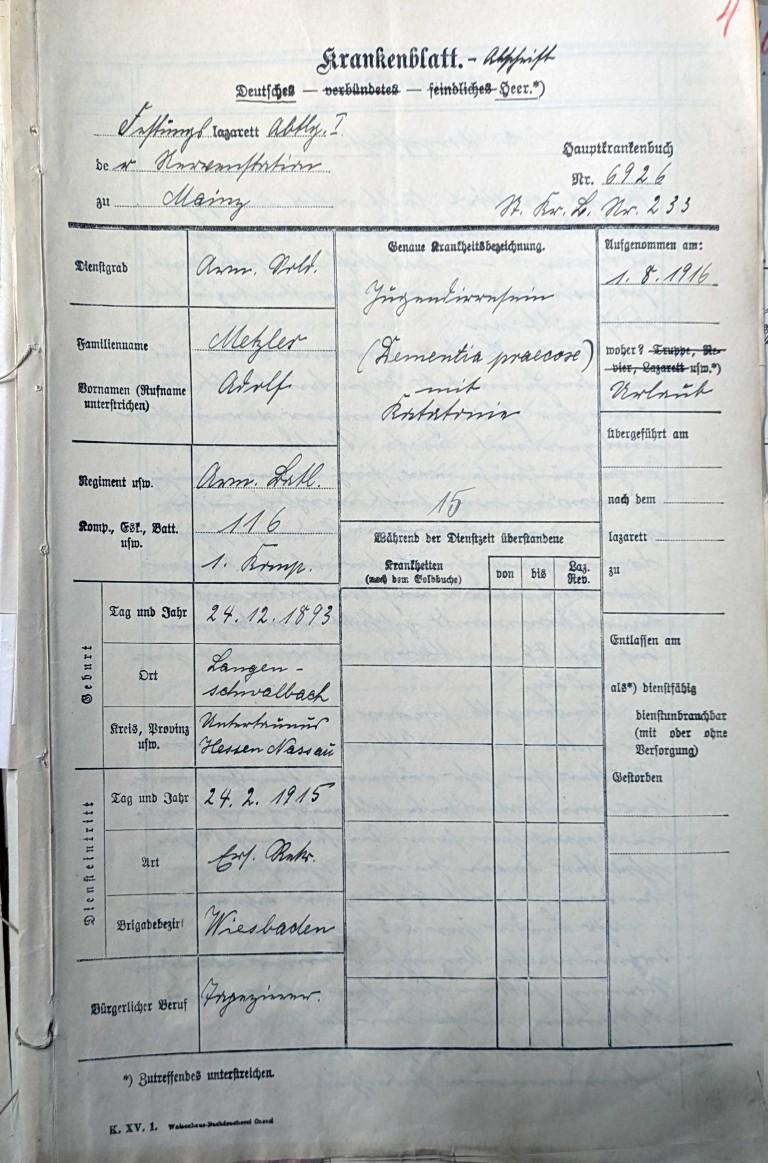 4
Krankenblatt. - Abschrift
Deutsches — verbündetes — feindliches Heer.*)
Festungs lazarett Abtlg. I.
de r Nervenstation
zu Mainz
Hauptkrankenbuch
Nr. 6926
St. Kr. B. Nr. 233
Dienstgrad
Arm. Sold.
Familienname
Metzler
Vornamen (Rufname
unterstrichen)
Adolf
Regiment usw.
Arm. Batl.
Komp., Esk., Batt.
usw.
116
1. Komp.
Geburt
Tag und Jahr
24.12.1893
Ort
Langen-
schwalbach
Kreis, Provinz
usw.
Untertaunus
Hessen Nassau
Diensteintritt
Tag und Jahr
24.2.1915
Art
Ers. Rekr.
Brigadebezirk
Wiesbaden
Bürgerlicher Beruf
Tapezierer.
Genaue Krankheitsbezeichnung.
Jugendirresein
(Dementia praecose)
mit
Katatonie
15
Während der Dienstzeit überstandene
Krankheiten
(nach dem Soldbuche)
von
bis
Laz.
Rev.
Aufgenommen am:
1.8.1916
woher? Truppe, Re-
vier, Lazarett usw.*)
Urlaub
übergeführt am
nach dem
lazarett
zu
Entlassen am
als*) dienstfähig
dienstunbrauchbar
(mit oder ohne
Versorgung)
Gestorben
*) Zutreffendes unterstreichen.
K. XV. 1. Waisenhaus-Buchdruckerei Cassel